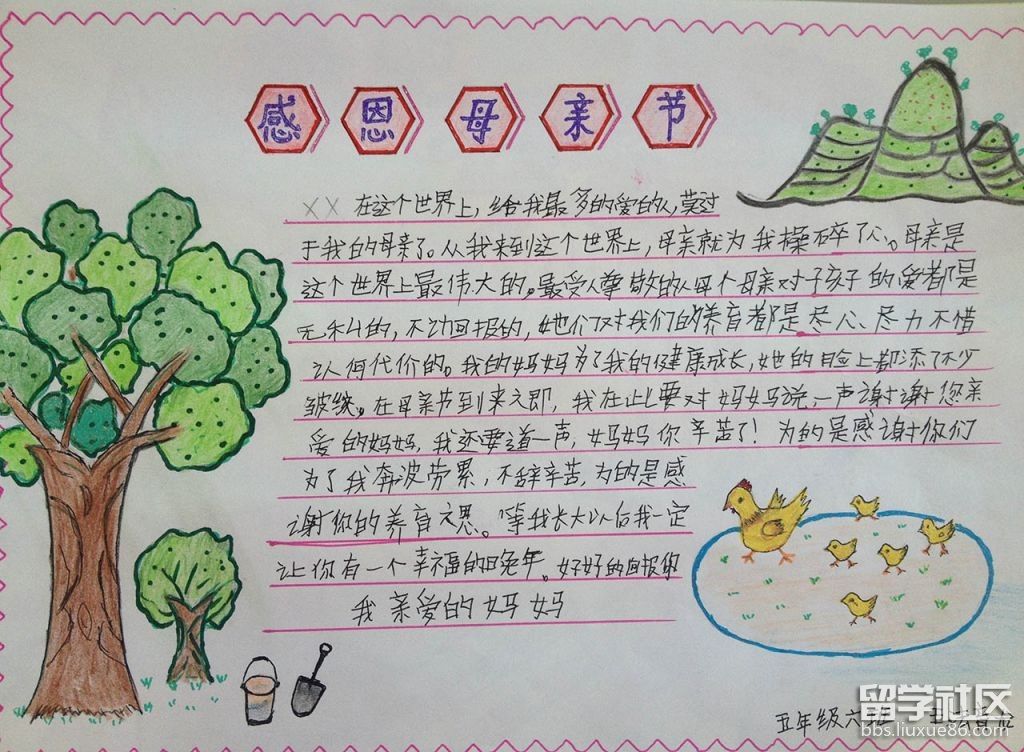 感恩母亲节
XX 在这个世界上,给我最多的爱的人,莫过
于我的母亲了。从我来到这个世界上,母亲就为我操碎了心。母亲是
这个世界上最伟大的。最受人尊敬的人每个母亲对子孩子的爱都是
无私的,不功回报的,她们对我们的养育都是尽心、尽力不惜
认何代价的。我的妈妈为了我的健康成长,她的脸上都添了不少
皱纹。在母亲节到来之即,我在此要对妈妈说一声谢谢您亲
爱的妈妈,我还要道一声,妈妈你辛苦了!为的是感谢你们
为了我奔波劳累,不辞辛苦,为的是感
谢你的养育之恩。等我长大以后我一定
让你有一个幸福的晚年。好好的回报你
我亲爱的妈妈
五年级六班
留学社区
bbs.liuxue86.com